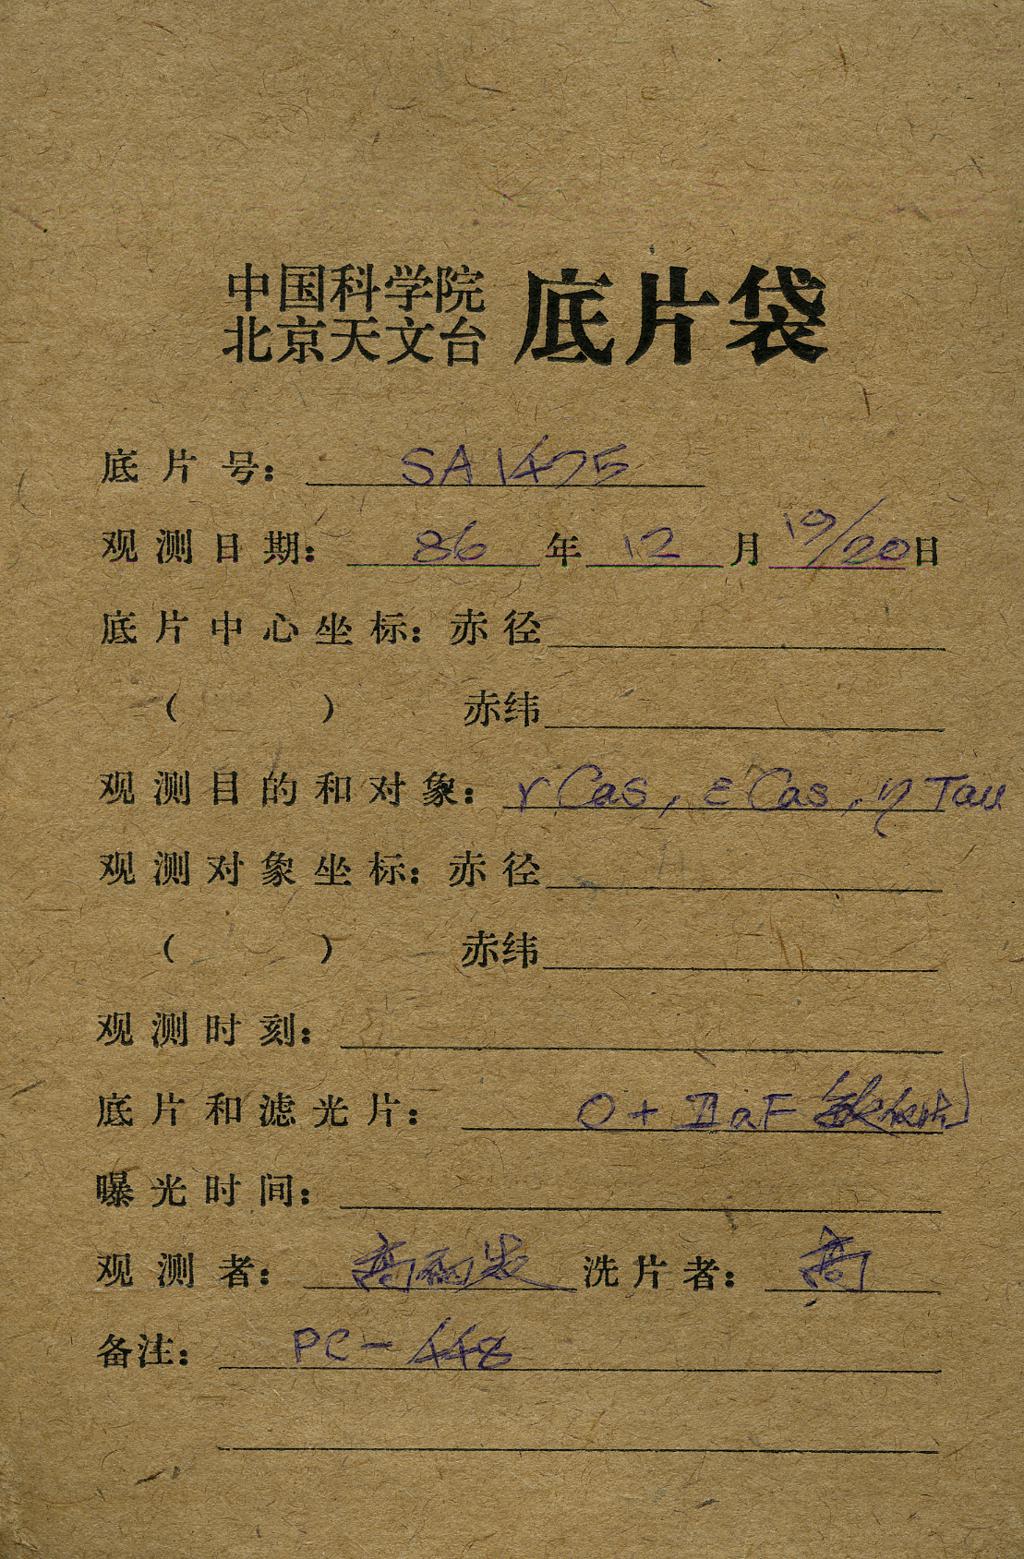 中国科学院
北京天文台 底片袋
底片号: SA1475
观测日期: 86年12月19/20日
底片中心坐标: 赤径
( ) 赤纬
观测目的和对象: γ Cas, ε Cas, η Tau
观测对象坐标: 赤径
( ) 赤纬
观测时刻:
底片和滤光片: O + IIaF
曝光时间:
观测者: 高 洗片者: 高
备注: PC-448